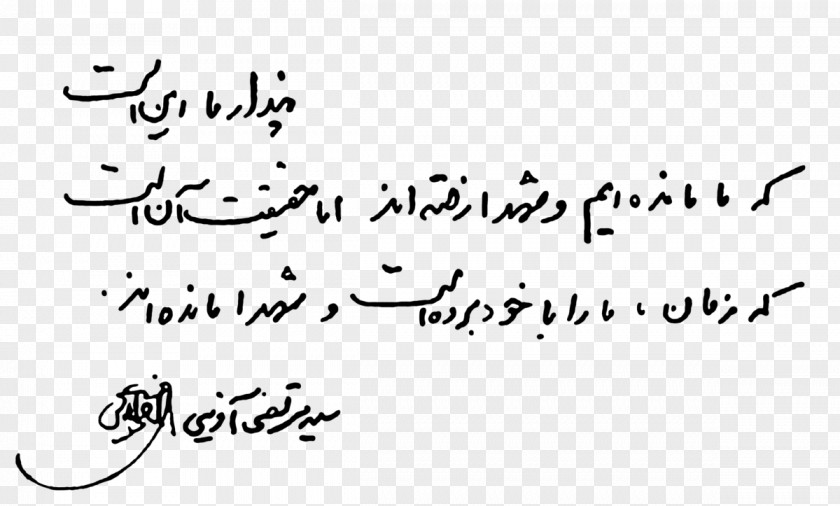 پندار ما این است
که ما مانده ایم و شهدا رفته اند اما حقیقت آن است
که زمان ، ما را با خود برده است و شهدا مانده اند .
سید مرتضی آوینی